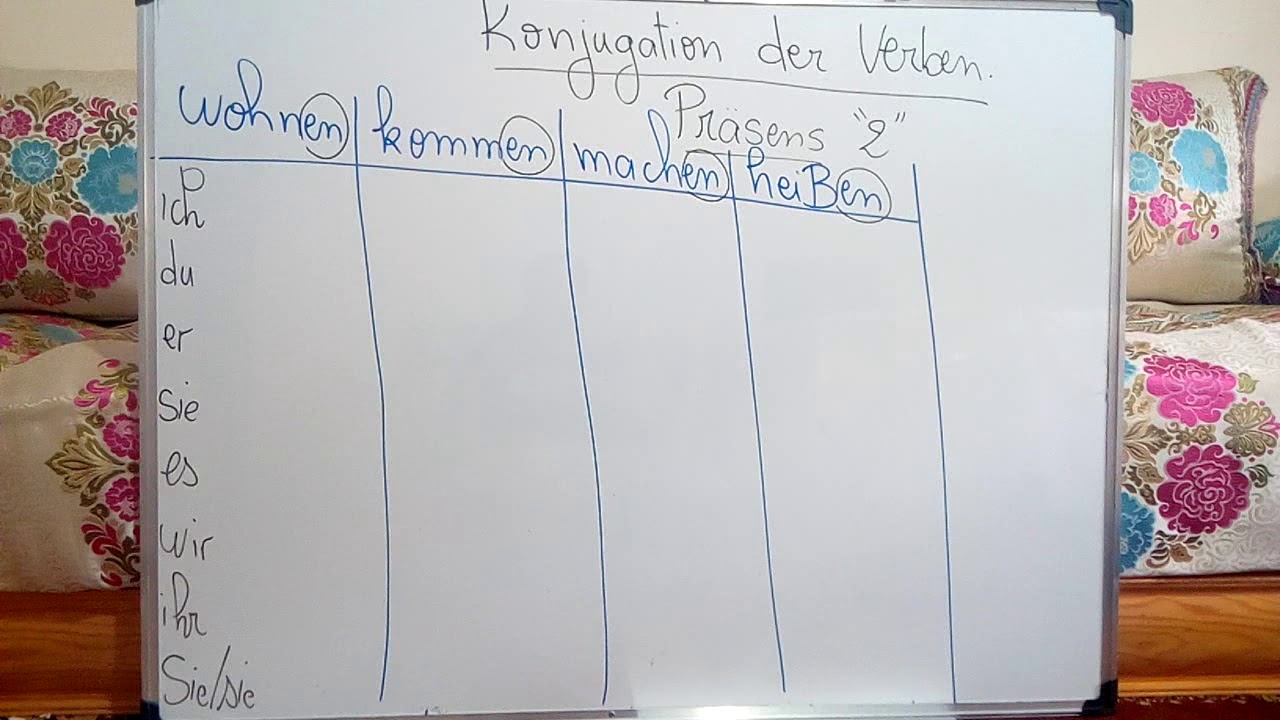 Konjugation der Verben.
Präsens "2"
wohnen kommen machen heißen
ich
du
er
sie
es
wir
ihr
Sie/sie